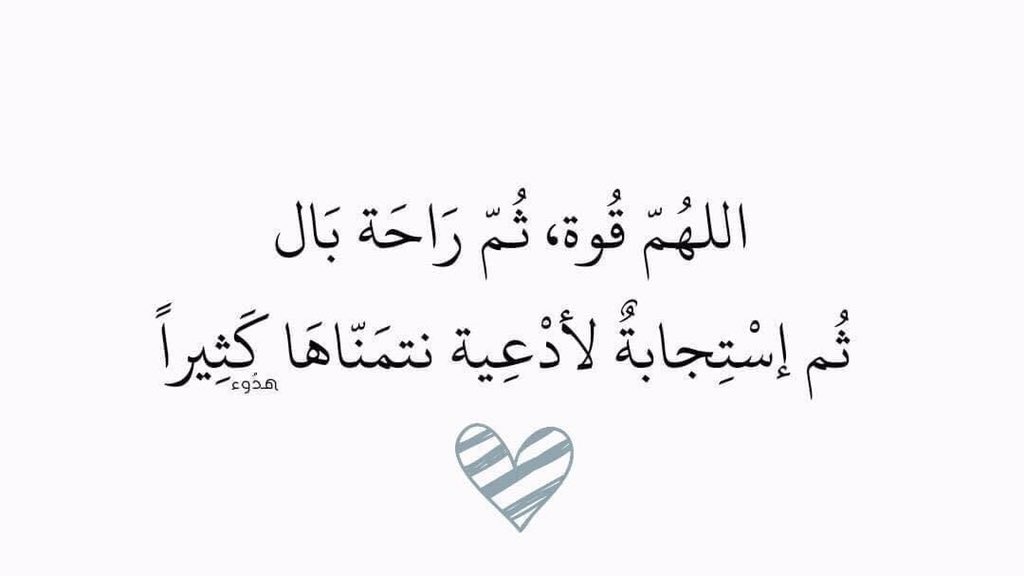 اللهُمّ قُوة، ثُمّ رَاحَة بَال
ثُم إسْتِجابةٌ لأدْعِية نتمَنّاهَا كَثِيراً
هدُوء